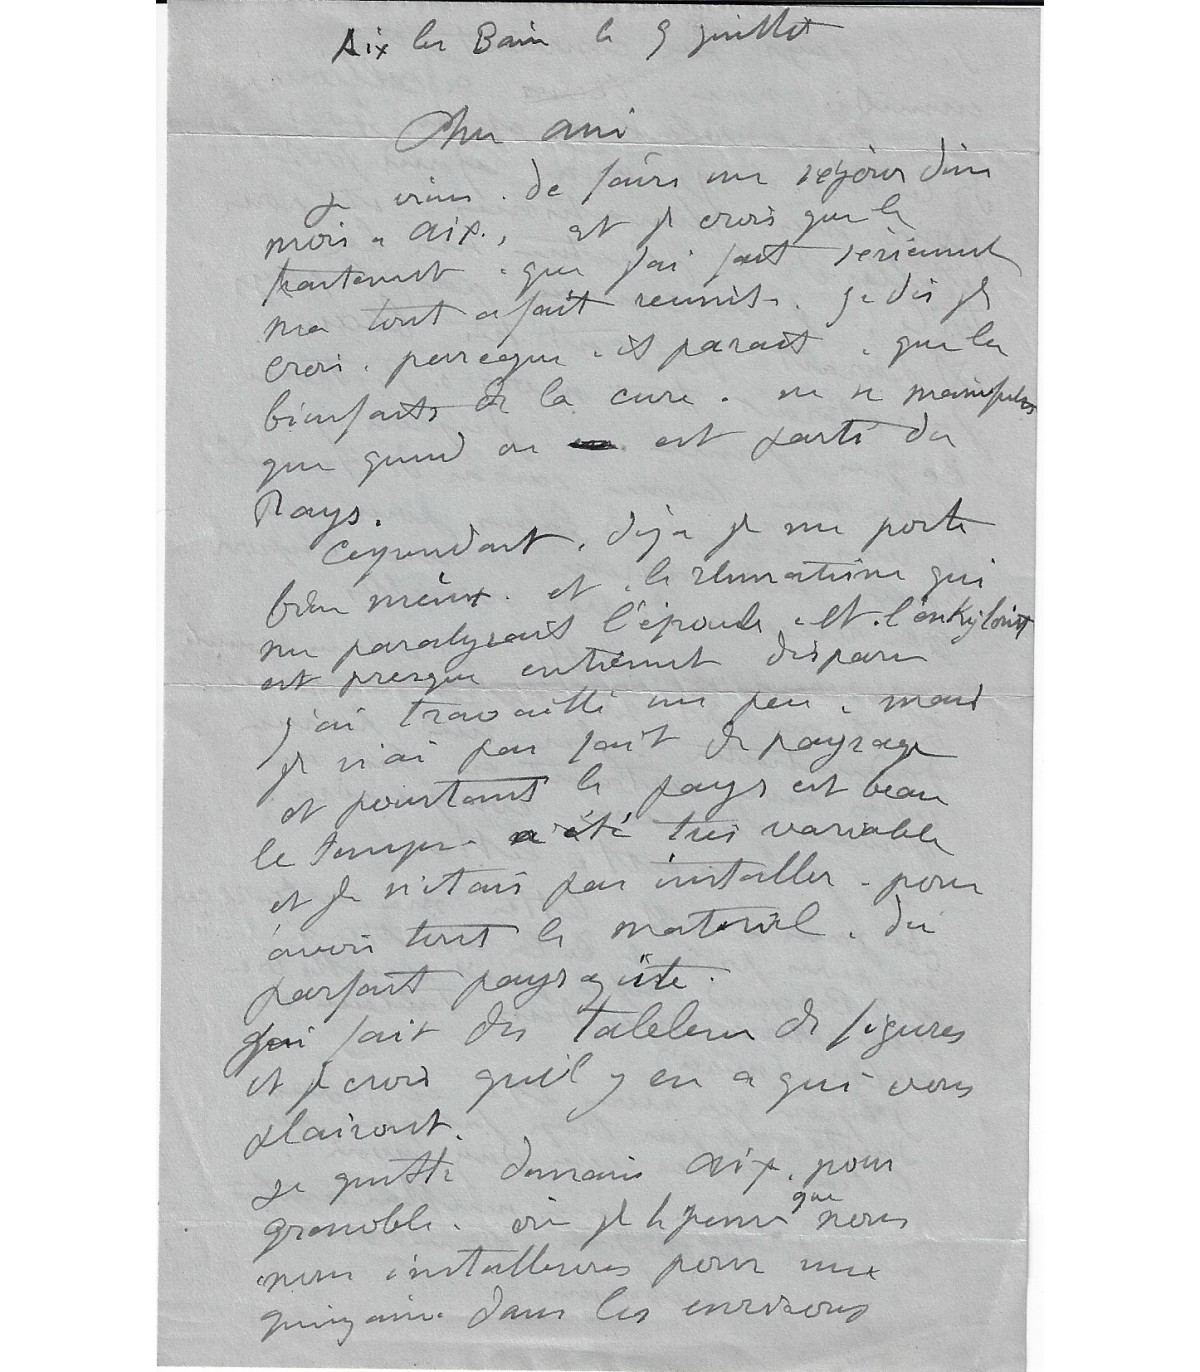 Aix les Bain le 9 juillet
Cher ami
je viens de faire un sejour d'un
mois a aix, et je crois que le
traitement que j'ai fait serieusement
m'a tout a fait reussit. je dis je
crois. parceque il parait que les
bienfaits de la cure. ne se manifestes
que quand on est parti du
Pays.
Cependant, déja je me porte
bien mieux. et le rhumatisme qui
me paralysait l'épaule et l'ankylosait
est presque entièrement disparu
j'ai travaillé un peu, mais
je n'ai pas fait de paysage
et pourtant le pays est beau
le temps a été très variable
et je n'étais pas installer pour
avoir tout le materiel du
parfait paysagiste.
J'ai fait des tableau de figures
et je crois qu'il y en a qui vous
plairont.
je quitte demain aix, pour
grenoble. où je pense que nous
nous installerons pour une
quinzaine dans les environs